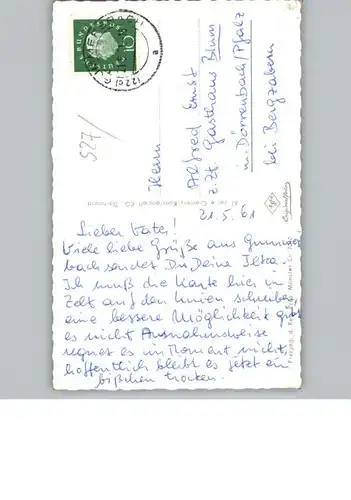 DEUTSCHE
BUNDESPOST
10
(22c)
a
527/
Herrn
Alfred Ernst
z. Zt. Gasthaus Blum
in Dörrenbach/Pfalz
bei Bergzabern
21.5.61
Lieber Vater!
Viele liebe Grüße aus Gummers
bach sendet Dir Deine Ilse.
Ich muß die Karte hier im
Zelt auf den Knien schreiben
eine bessere Möglichkeit gibt
es nicht. Ausnahmsweise
regnet es im Moment nicht,
hoffentlich bleibt es jetzt ein
bißchen trocken.